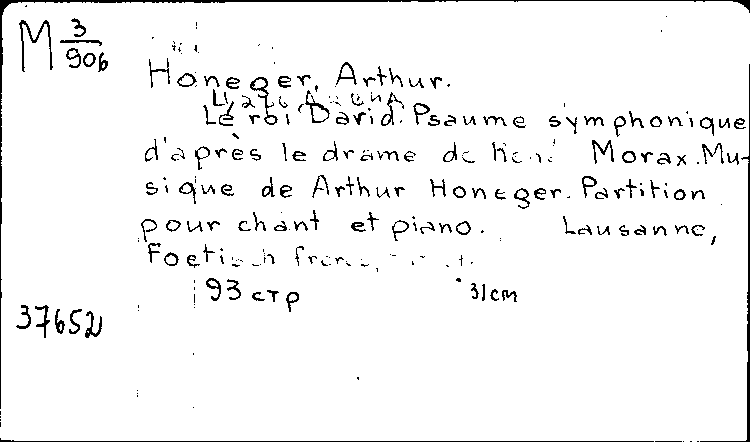 M 3/906
Honeger, Arthur.
Le roi David. Psaume symphonique
d'après le drame de Morax. Mu-
sique de Arthur Honeger. Partition
pour chant et piano. Lausanne,
Foetisch
93 стр 31 cm
37652